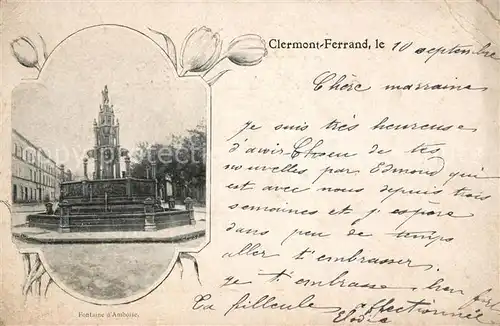 Clermont-Ferrand, le 10 septembre
Chère marraine
je suis très heureuse
d'avoir de tes
nouvelles par Edmond qui
est avec nous depuis trois
semaines et j'espère
dans peu de temps
aller t'embrasser.
je t'embrasse bien fort
Ta filleule affectionnée
Elodie
Fontaine d'Amboise.